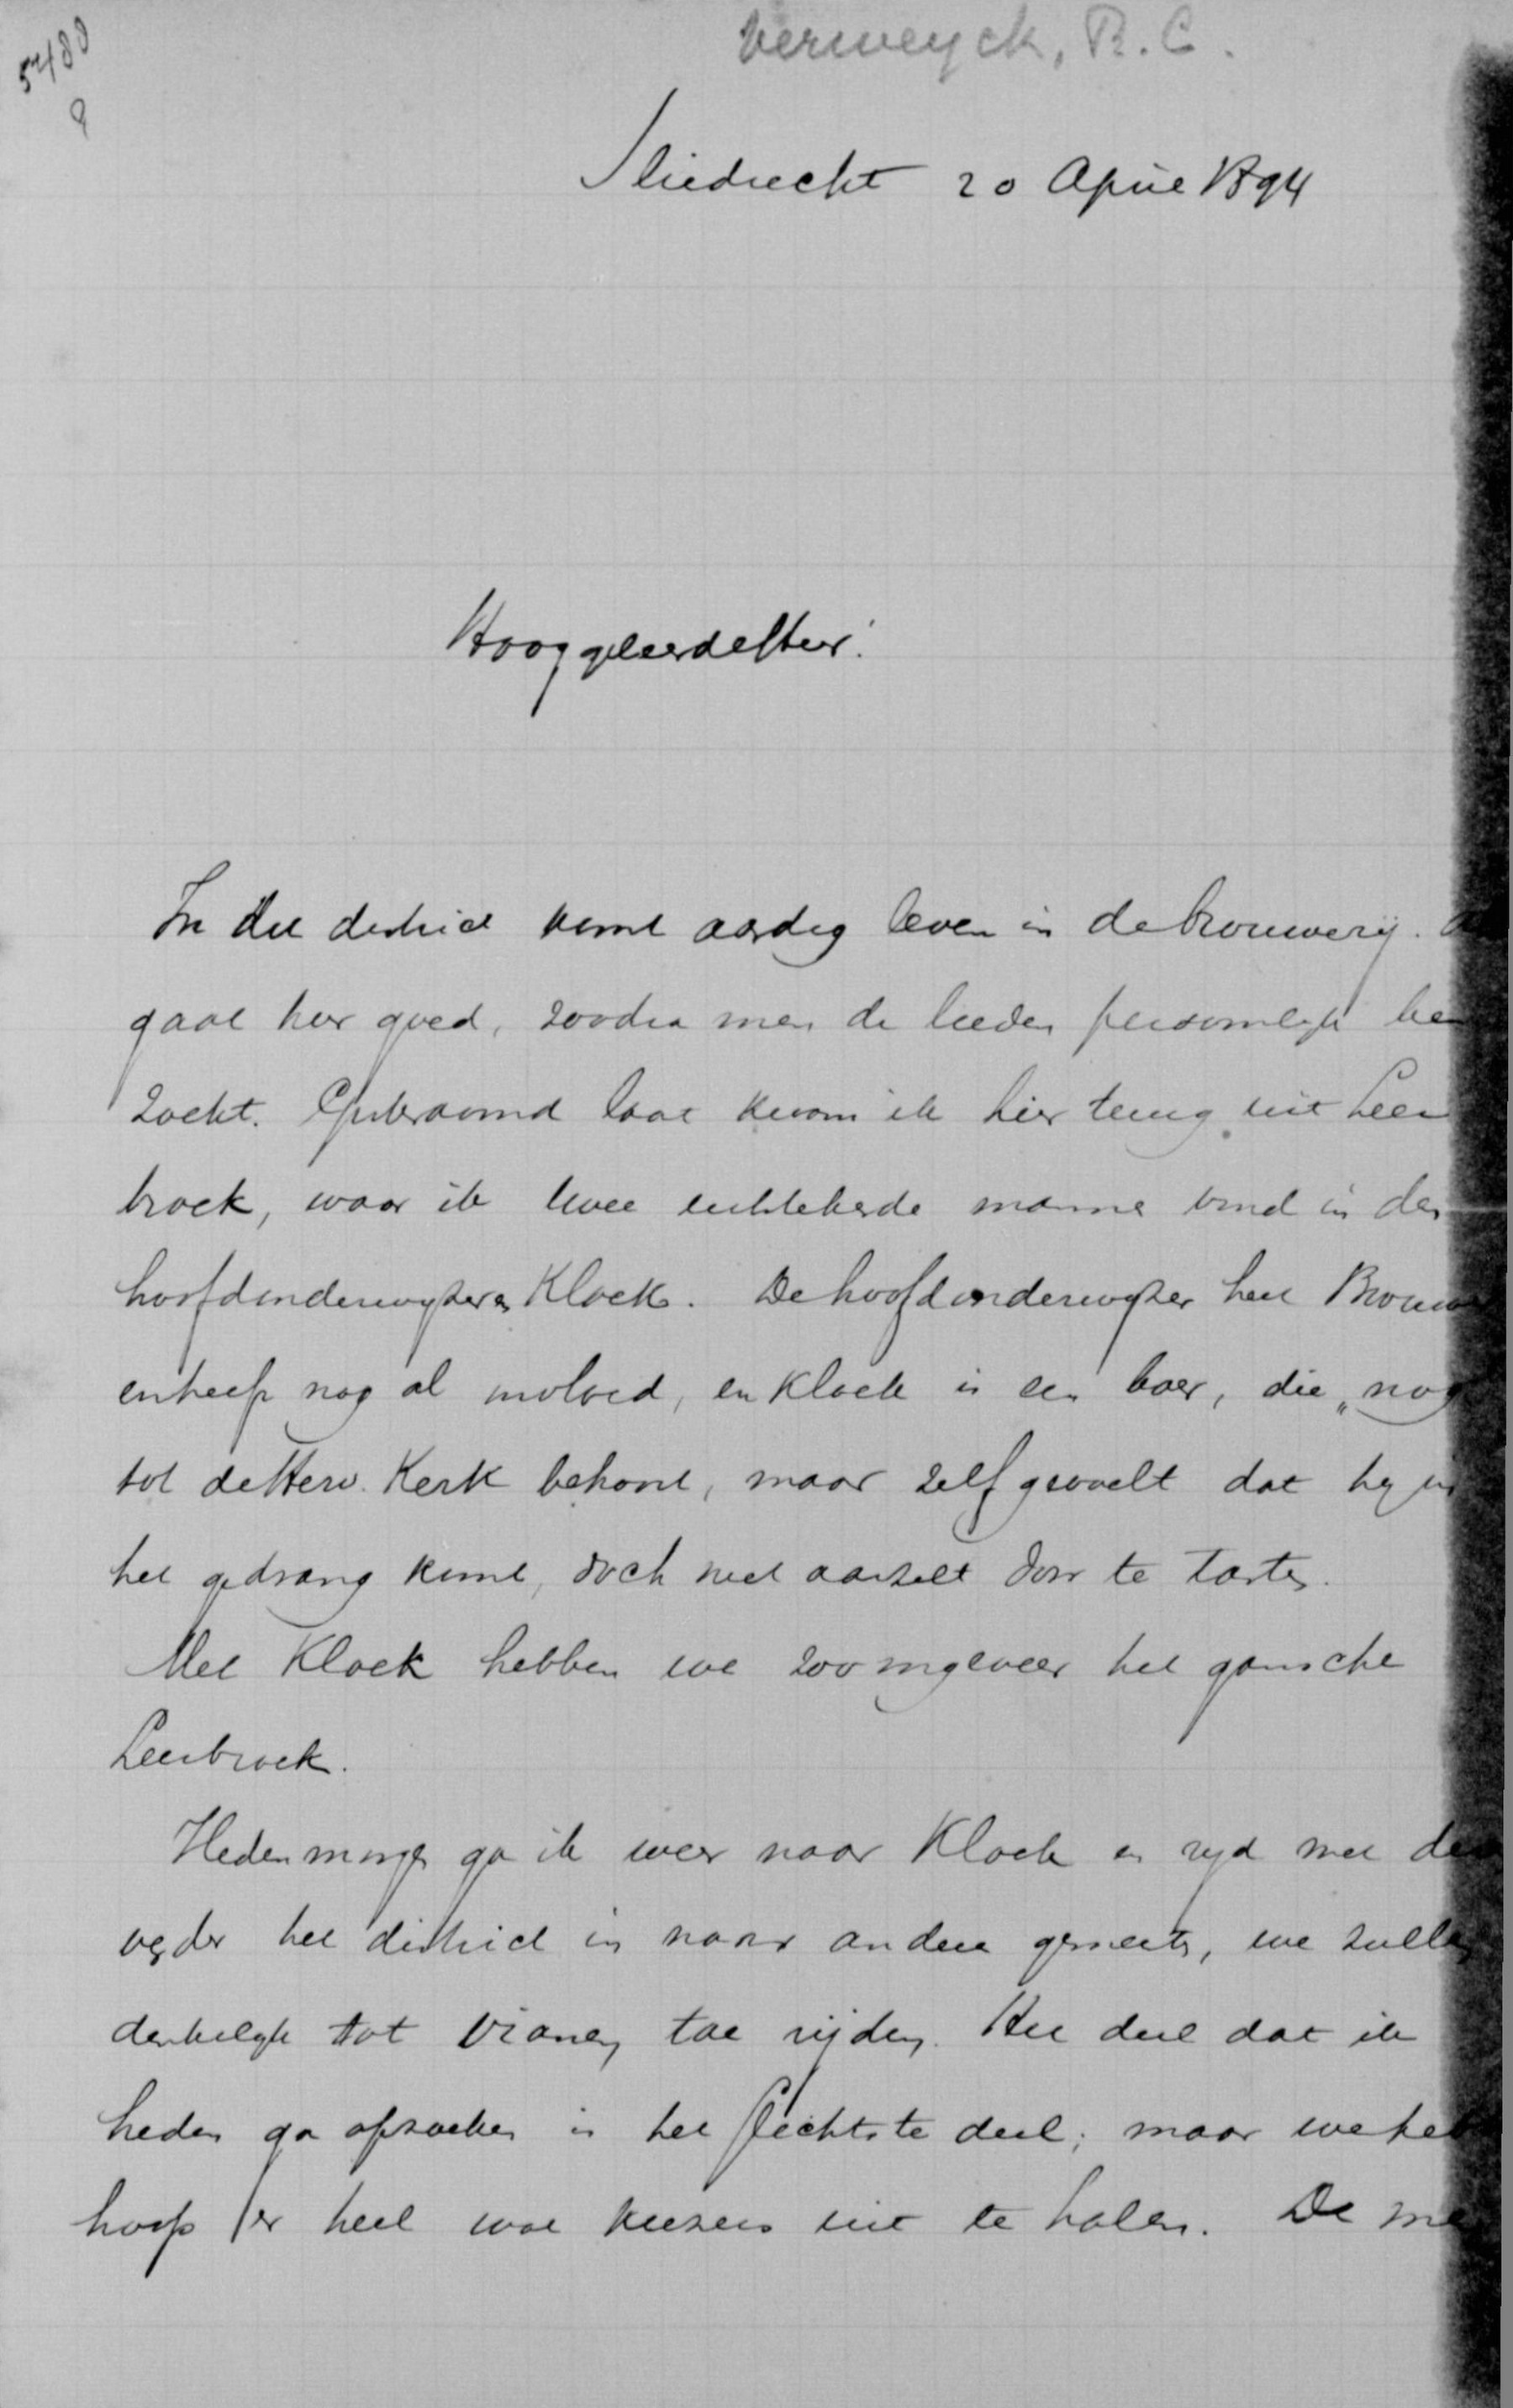 5480
9
Verweyck, R. C.
Sliedrecht 20 April 1894
Hooggeleerde Heer!
In dit district komt aardig leven in de brouwerij.
gaat hier goed, zoodra men de lieden persoonlijk be
zoekt. Gisteravond laat kwam ik hier terug uit Leer
broek, waar ik twee uitstekende mannen vond in den
hoofdonderwyzer en Kloek. De hoofdonderwyzer heet Brouwer
en heeft nog al invloed, en Kloek is een boer, die „nog
tot de Herv. Kerk behoort, maar zelf gevoelt dat hy in
het gedrang komt, doch niet aarzelt door te tasten.
Met Kloek hebben we zoo ongeveer het gansche
Leerbroek.
Heden morgen ga ik weer naar Kloek en ryd met dezen
verder het district in naar andere gemeenten, we zullen
denkelyk tot Vianen toe rijden. Het deel dat ik
heden ga opzoeken is het slechtste deel; maar we heb
hoop er heel wat kiezers uit te halen. De me